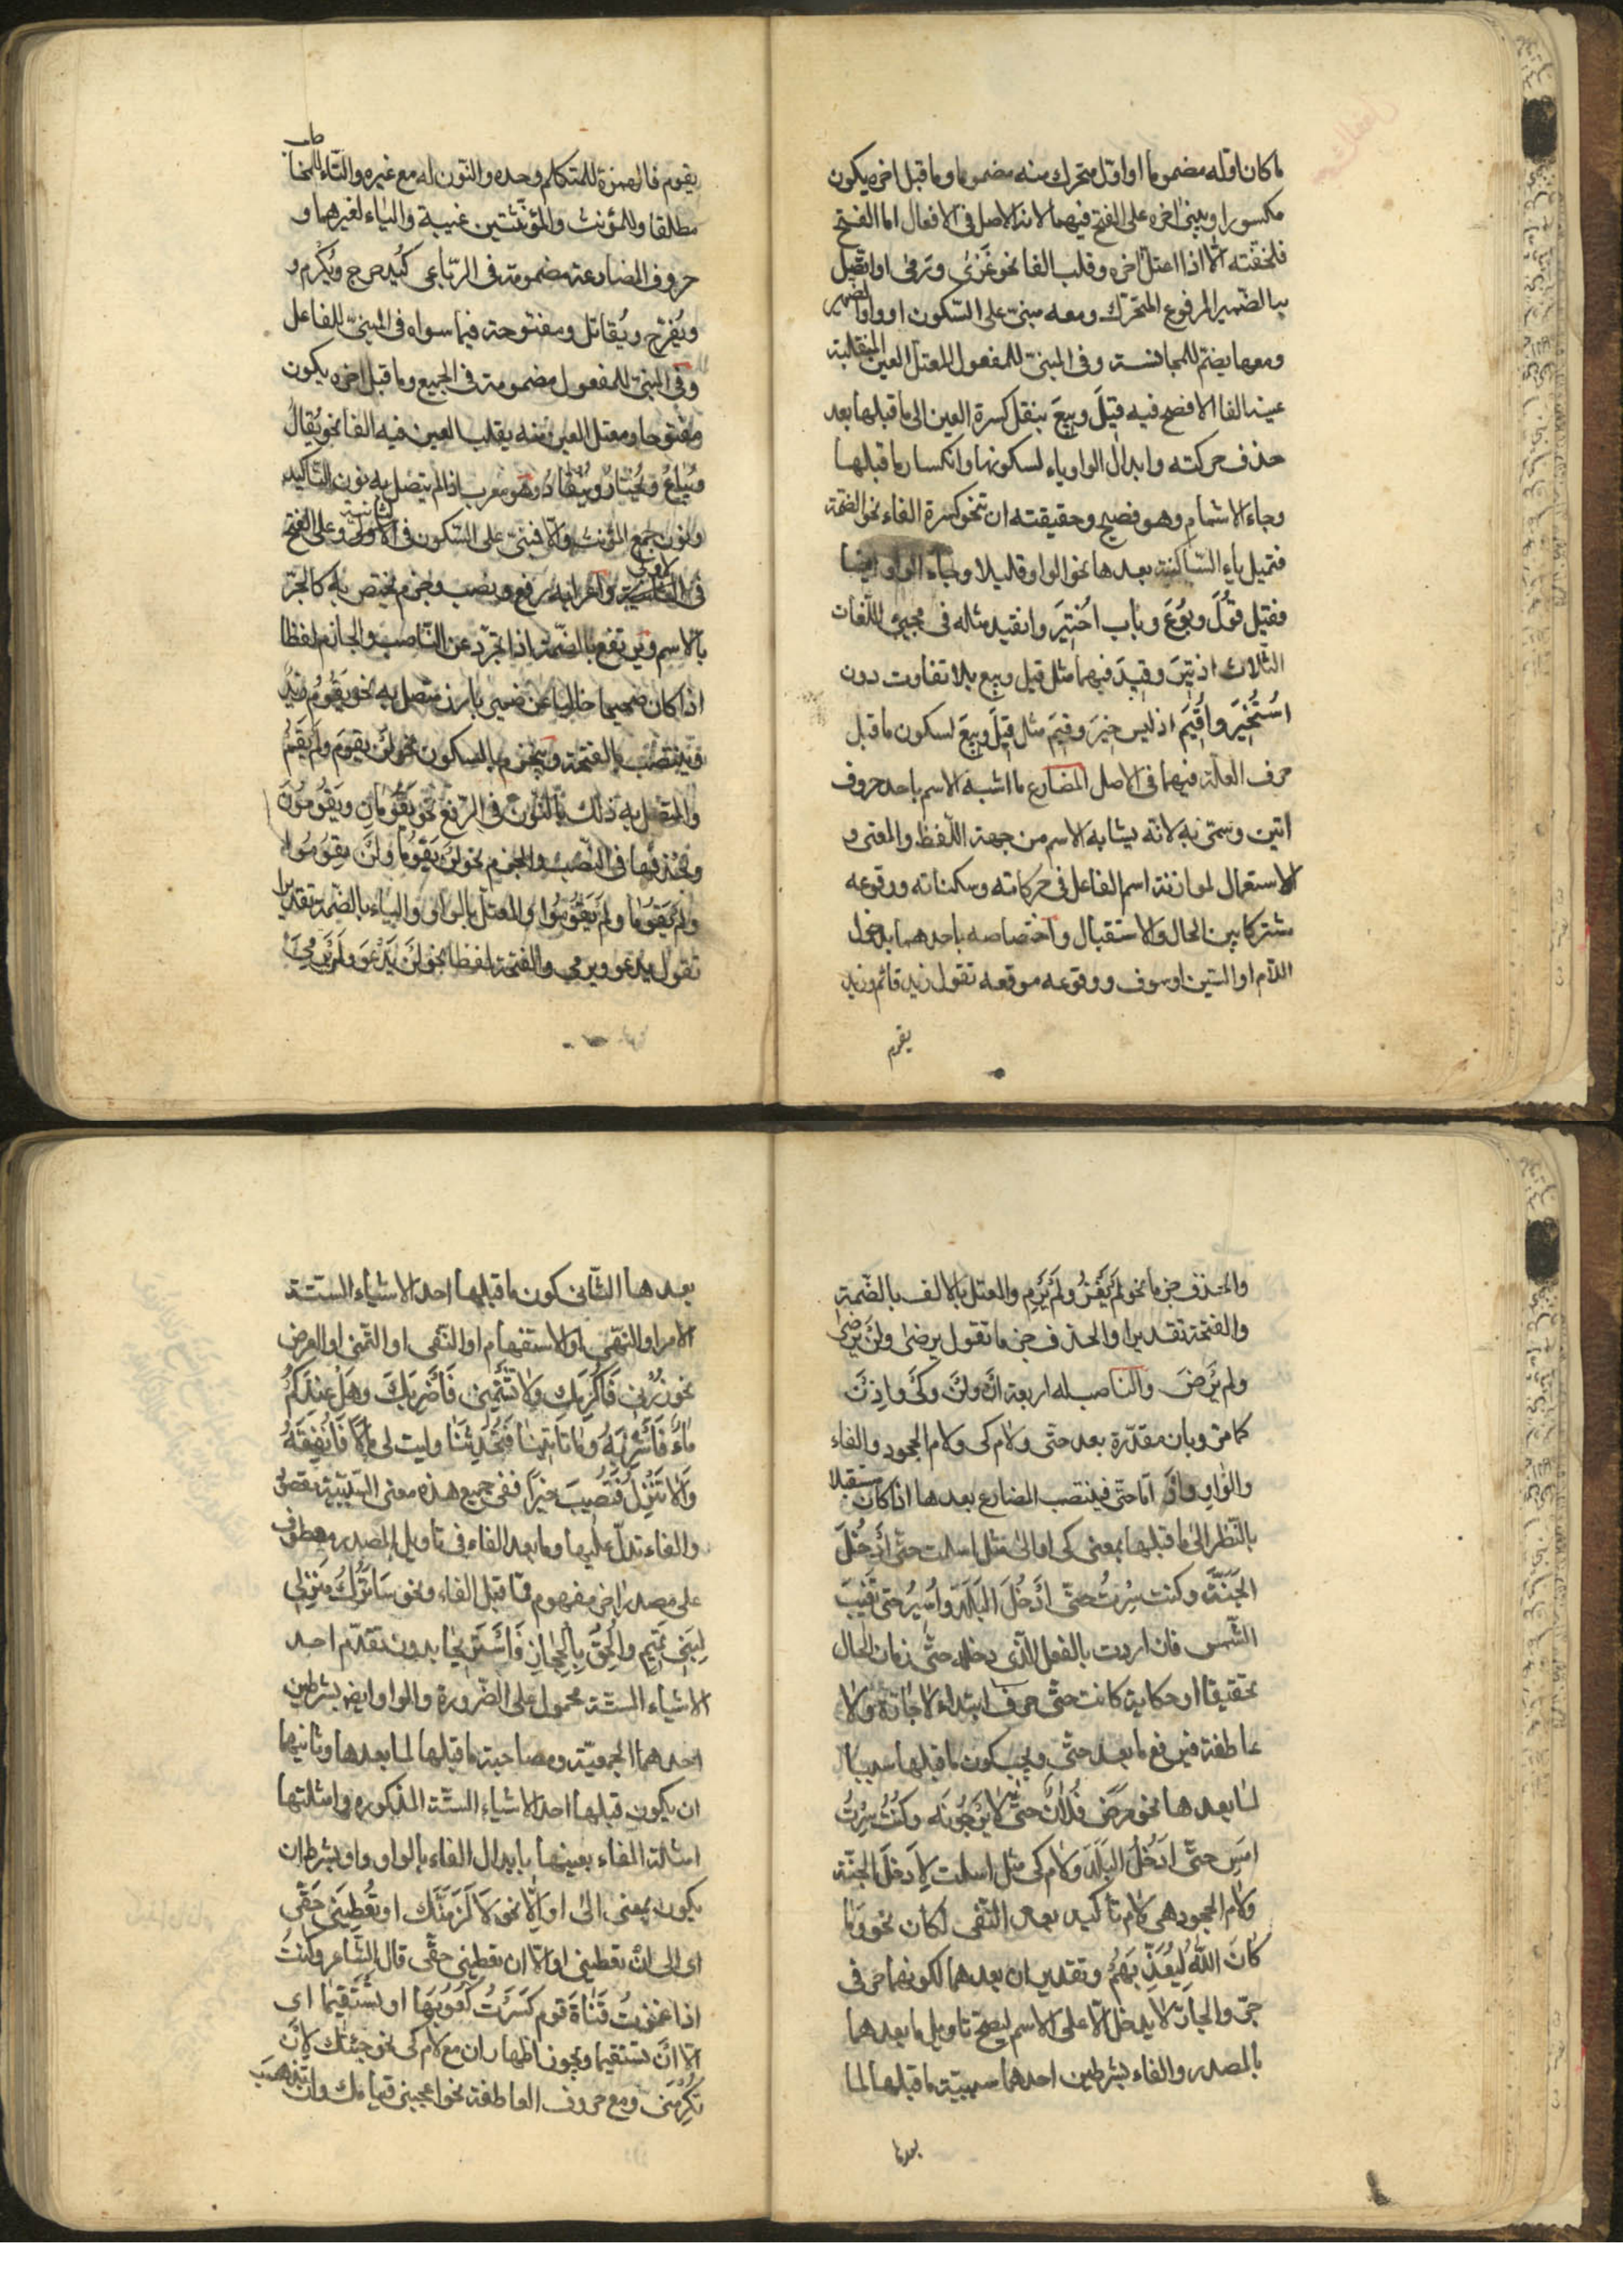 ما كان اوّله مضموما او اوّل متحرك منه مضموما وما قبل اخره يكون
مكسورا ويبنى اخره على الفتح فيهما لانه الاصل فى الافعال اما الفتح
فلخفّته الّا اذا اعتلّ اخره وقلب الفا نحو غَزىٰ ورَمىٰ او اتّصل
بالضّمير المرفوع المتحّرك ومعه مبنىّ على السّكون او واو الضمير
ومعها يضمّ للمجانسة وفى المبنىّ للمفعول المعتلّ العين المنقلبة
عينه الفا الافصح فيه قِيلَ وبِيعَ بنقل كسرة العين الى ما قبلها بعد
حذف حركته وابدال الواو ياء لسكونها وانكسار ما قبلها
وجاء الاشمام وهو فصيح وحقيقته ان تنحو كسرة الفاء نحو الضمّة
فتميل ياء السّاكنة بعدها نحو الواو قليلا وجاء الواو ايضا
فقيل قُوُلَ وبُوُعَ وباب اُخْتِيَر وانقيد مثله فى مجيئ اللّغات
الثّلاث اذ تِيَرَ وقِيدَ فيهما مثل قيل وبيع بلا تفاوت دون
اُسْتُخْيِرَ واُقِيَم اذ ليس خِيَرَ وقِيَم مثل قِيلَ وبِيعَ لسكون ما قبل
حرف العلّة فيهما فى الاصل المضارع ما اشبه الاسم باحد حروف
اتين وسمّى به لانّه يشابه الاسم من جهة اللّفظ والمعنى و
الاستعمال لموازنة اسم الفاعل فى حركاته وسكناته ووقوعه
مشتركا بين الحال والاستقبال واختصاصه باحدهما بدخول
اللّام او السّين او سوف ووقوعه موقعه تقول زيد قائم وزيد
يقوم
يقوم فالهمزة للمتكلّم وحده والنّون له مع غيره والتّاء للمخاطب
مطلقا وللمؤنث والمؤنّثتين غيبة والياء لغيرهما و
حروف المضارعة مضمومة فى الرّباعى كيُدحرج ويُكْرِم و
ويُفرّح ويُقاتل ومفتوحة فيما سواه فى المبنىّ للفاعل
وفى المبنىّ للمفعول مضمومة فى الجميع وما قبل اخره يكون
مفتوحا ومعتل العين منه يقلب العين فيه الفا نحو يُقالُ
ويُباعُ ويُخْتارُ ويُنْقادُ وهو معرب اذا لم يتصل به نون التّاكيد
ونون جمع المؤنث والّا فبنىّ على السّكون فى الثانية وعلى الفتح
فى الاولى واعرابه رفع ونصب وجزم يختص به كالجرّ
بالاسم ويرتفع بالضّمة اذا تجرّد عن النّاصب والجازم لفظا
اذا كان صحيحا خاليا عن ضمير بارز متصل به نحو يَقُومُ زيدٌ
فينتصب بالفتحة وينجزم بالسكون نحو لَنْ يقومَ ولَمْ يَقُمْ
والمتّصل به ذلك بالنّون فى الرّفع نحو يَقُومانِ ويَقُومُونَ
وبحذفها فى النّصب والجزم نحو لَنْ يَقُوما ولَنْ يقُومُوا
ولَمْ يَقُوما ولَمْ يَقُومُوا والمعتلّ بالواو والياء بالضّمة تقديرا
تقول يدعو ويرمى والفتحة لفظا نحو لَنْ يَدْعُوَ ولَنْ يَرْمِىَ
والحذف جزما نحو لَمْ يَغْزُ ولَمْ يَرْمِ والمعتلّ بالالف بالضّمة
والفتحة تقديرا والحذف جزما تقول يرضىٰ ولَنْ يَرْضىٰ
ولم يَرْضَ والنّاصب له اربعة اَنْ ولَنْ وكَىْ واِذَنْ
كما مرّ وبان مقدّرة بعد حتّى ولام كى ولام الجحود والفاء
والواو واَوْ امّا حتّى فينتصب المضارع بعدها اذا كان مستقبلا
بالنّظر الى ما قبلها بمعنى كى او الىٰ مثل اسلمت حتّى اَدْخُلَ
الجَنَّةَ وكنت سِرْتُ حتّى اَدْخُلَ البَلَدَ واَسِيرُ حتّى تَغِيبَ
الشّمس فان اردت بالفعل الّذى دخله حتّى زمان الحال
تحقيقا او حكاية كانت حتّى حرف ابتداء لا جارّة ولا
عاطفة فيرفع ما بعد حتّى ويجب كون ما قبلها سببا
لما بعدها نحو مَرِضَ فُلانٌ حتّى لا يَرْجُونَه وكُنْتُ سِرْتُ
امسِ حتّى اَدْخُلُ البَلَدَ ولام كى مثل اسلمت لِاَدخلَ الجنّة
ولام الجحود هى لام تاكيد بعد النّفى لكان نحو وَمٰا
كانَ اللّٰهُ لِيُعَذِّبَهُمْ وتقدير ان بعدهما لكونهما حرفى
جرّ والجارّ لا يدخل الّا على الاسم ليصحّ تاويل ما بعدهما
بالمصدر والفاء بشرطين احدهما سببيّة ما قبلها لما
بعدها
بعدها الثّانى كون ما قبلها احد الاشياء السّتّة
الامر او النّهى او الاستفهام او النّفى او التّمنى او العرض
نحو زُرْنى فَاُكْرِمَك ولا تَشْتِمْنى فَاَضْرِبَكَ وهَلْ عِنْدَكُمْ
ماءٌ فَاَشْرَبَهُ وما تَأتِينا فَتُحَدِّثَنا وليت لى مالًا فَاُنْفِقَهُ
وَاَلا تَنْزِلُ فَتُصِيبَ خيراً ففى جميع هذه معنى السّببيّة مقصود
والفاء تدلّ عليها وما بعد الفاء فى تاويل المصدر معطوف
على مصدر اخر مفهوم ممّا قبل الفاء ونحو سَاَتْرُكُ مَنْزِلى
لِبَنى تَمِيمٍ واَلْحَقُ بِالْحِجٰازِ فَاَسْتَرِيحا بدون تقدّم احد
الاشياء السّتّة محمول على الضّرورة والواو ايضا بشرطين
احدهما الجمعيّة ومصاحبة ما قبلها لما بعدها وثانيهما
ان يكون قبلها احد الاشياء السّتّة المذكوره وامثلتها
امثلة الفاء بعينها بابدال الفاء بالواو واو بشرط ان
يكون بمعنى الىٰ او اِلّا نحو لَاَلْزَمَنَّك او تُعْطِيَنى حَقّى
اى الى ان تعطينى او الّا ان تعطينى حقّى قال الشّاعر وكُنْتُ
اذا غمزْتُ قَناةَ قوم كَسَرْتُ كُعُوبَها او تَسْتَقِيمَا اى
الّا اَنْ تستقيما ويجوز اظهار ان مع لام كى نحو جئتك لِاَنْ
تُكْرِمَنى ومع حروف العاطفة نحو اعجبنى قيامك وان تذهبَ